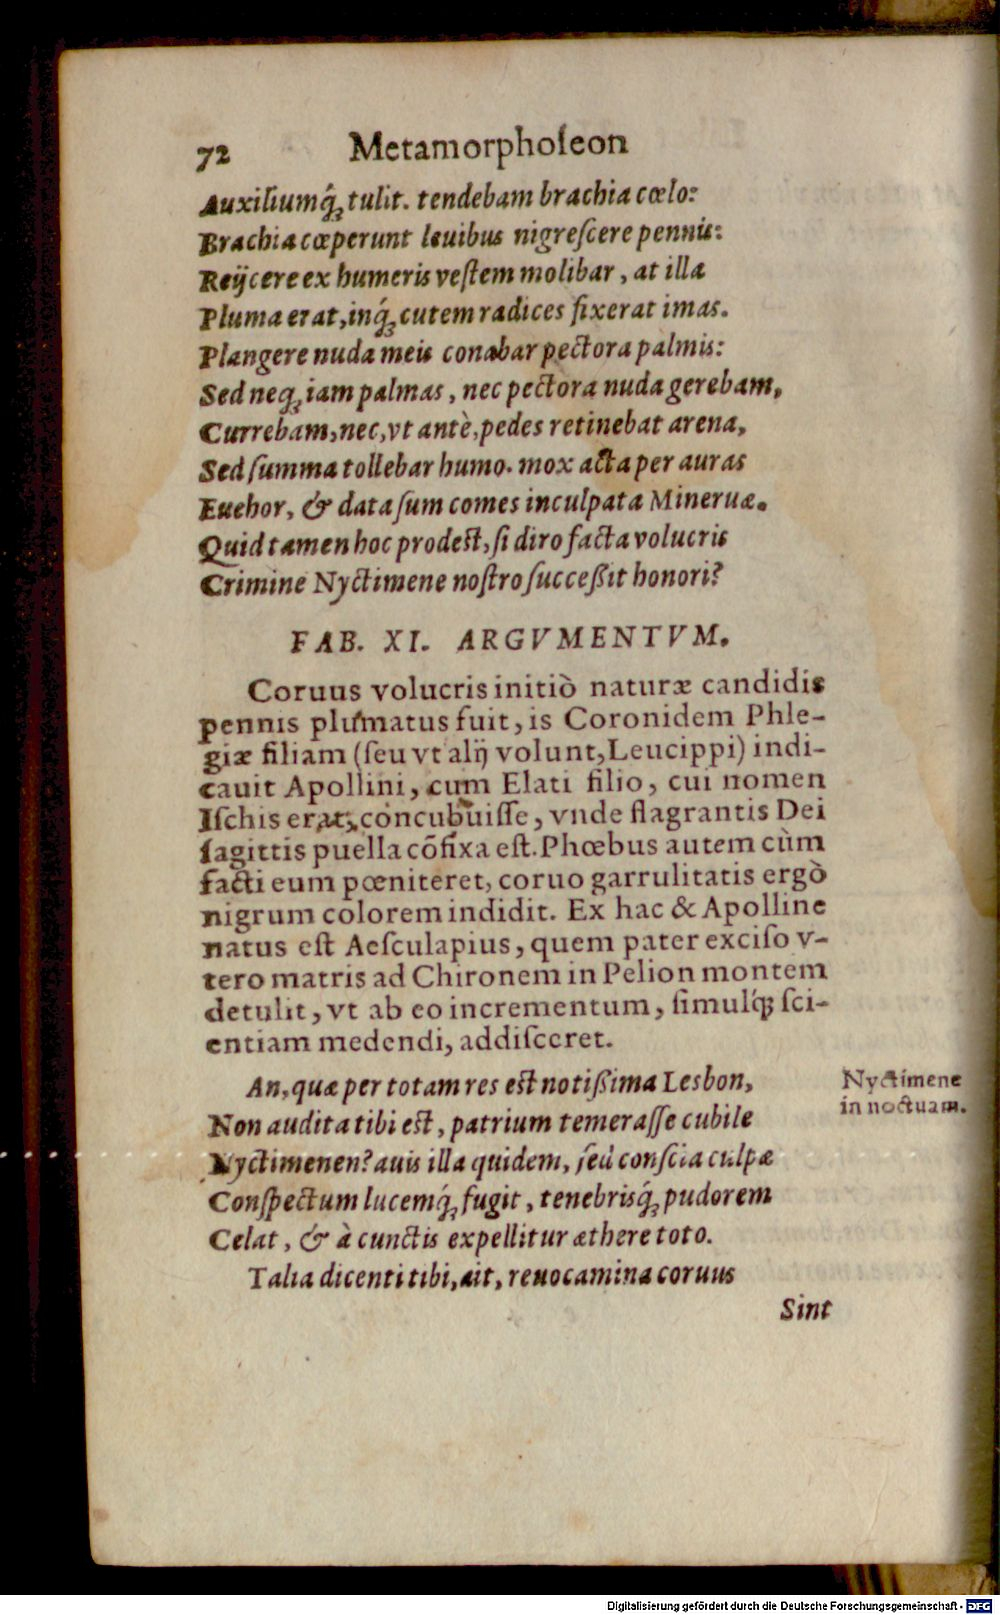 72 Metamorphoſeon
Auxiliumq́; tulit. tendebam brachia cœlo:
Brachia cœperunt leuibus nigreſcere pennis:
Reijcere ex humeris veſtem molibar, at illa
Pluma erat, inq́; cutem radices fixerat imas.
Plangere nuda meis conabar pectora palmis:
Sed neq; iam palmas, nec pectora nuda gerebam,
Currebam, nec, vt antè, pedes retinebat arena,
Sed ſumma tollebar humo. mox acta per auras
Euehor, & data ſum comes inculpata Mineruæ.
Quid tamen hoc prodest, ſi diro facta volucris
Crimine Nyctimene noſtro ſucceßit honori?
FAB. XI. ARGVMENTVM.
Coruus volucris initiò naturæ candidis
pennis plumatus fuit, is Coronidem Phle-
giæ filiam (ſeu vt alij volunt, Leucippi) indi-
cauit Apollini, cum Elati filio, cui nomen
Iſchis erat, concubuiſſe, vnde flagrantis Dei
ſagittis puella cõfixa eſt. Phœbus autem cùm
facti eum pœniteret, coruo garrulitatis ergò
nigrum colorem indidit. Ex hac & Apolline
natus eſt Aeſculapius, quem pater exciſo v-
tero matris ad Chironem in Pelion montem
detulit, vt ab eo incrementum, ſimulq́; ſci-
entiam medendi, addiſceret.
An, quæ per totam res est notißima Lesbon,
Non audita tibi est, patrium temeraſſe cubile
Nyctimenen? auis illa quidem, ſed conſcia culpæ
Conſpectum lucemq́; fugit, tenebrisq́; pudorem
Celat, & à cunctis expellitur æthere toto.
Talia dicenti tibi, ait, reuocamina coruus
Sint
Nyctimene
in noctuam.
Digitalisierung gefördert durch die Deutsche Forschungsgemeinschaft - DFG